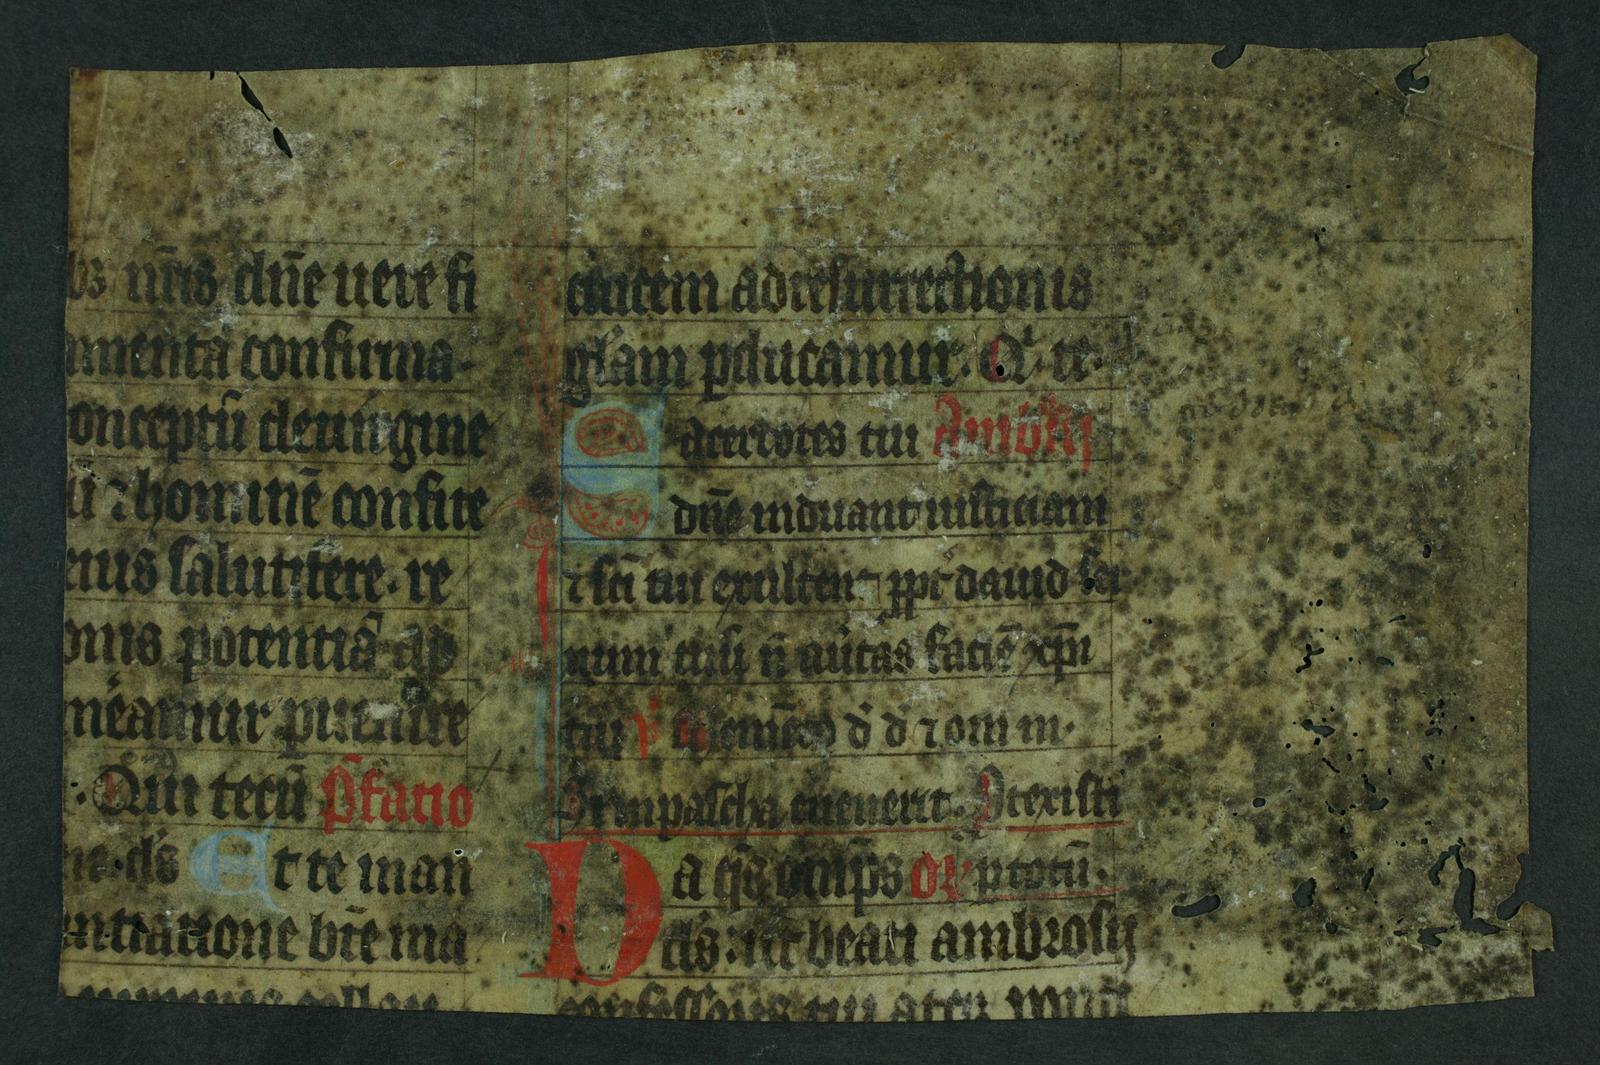 bs nr̄is dn̄e uere fi
amenta confirma-
onceptū deuirgine
ū ⁊ hominē confite
enis salutifere. re
onis potentiā ad
meamur puenire
Qui tecū p̄fatio
ne. ds̄ Et te man
untiatione btē ma
crucem ad resurrectionis
gl̄am ꝑducamur. Q̇ te.
Sacerdotes tui Ambr̄sij
dn̄e induant iusticiam
⁊ sc̄i tui exultent ꝓpt̄ dauid ser
uum tuū n̄ auertas faciē xp̄i
tui p̄s Memēto d̄ d̄ ⁊ om̄ m.
Si in pascha euenerit. Protexisti
Da qs̄ om̄ps or̄ p totū.
ds̄. ut beati ambrosij
confessoris tui atqꝫ